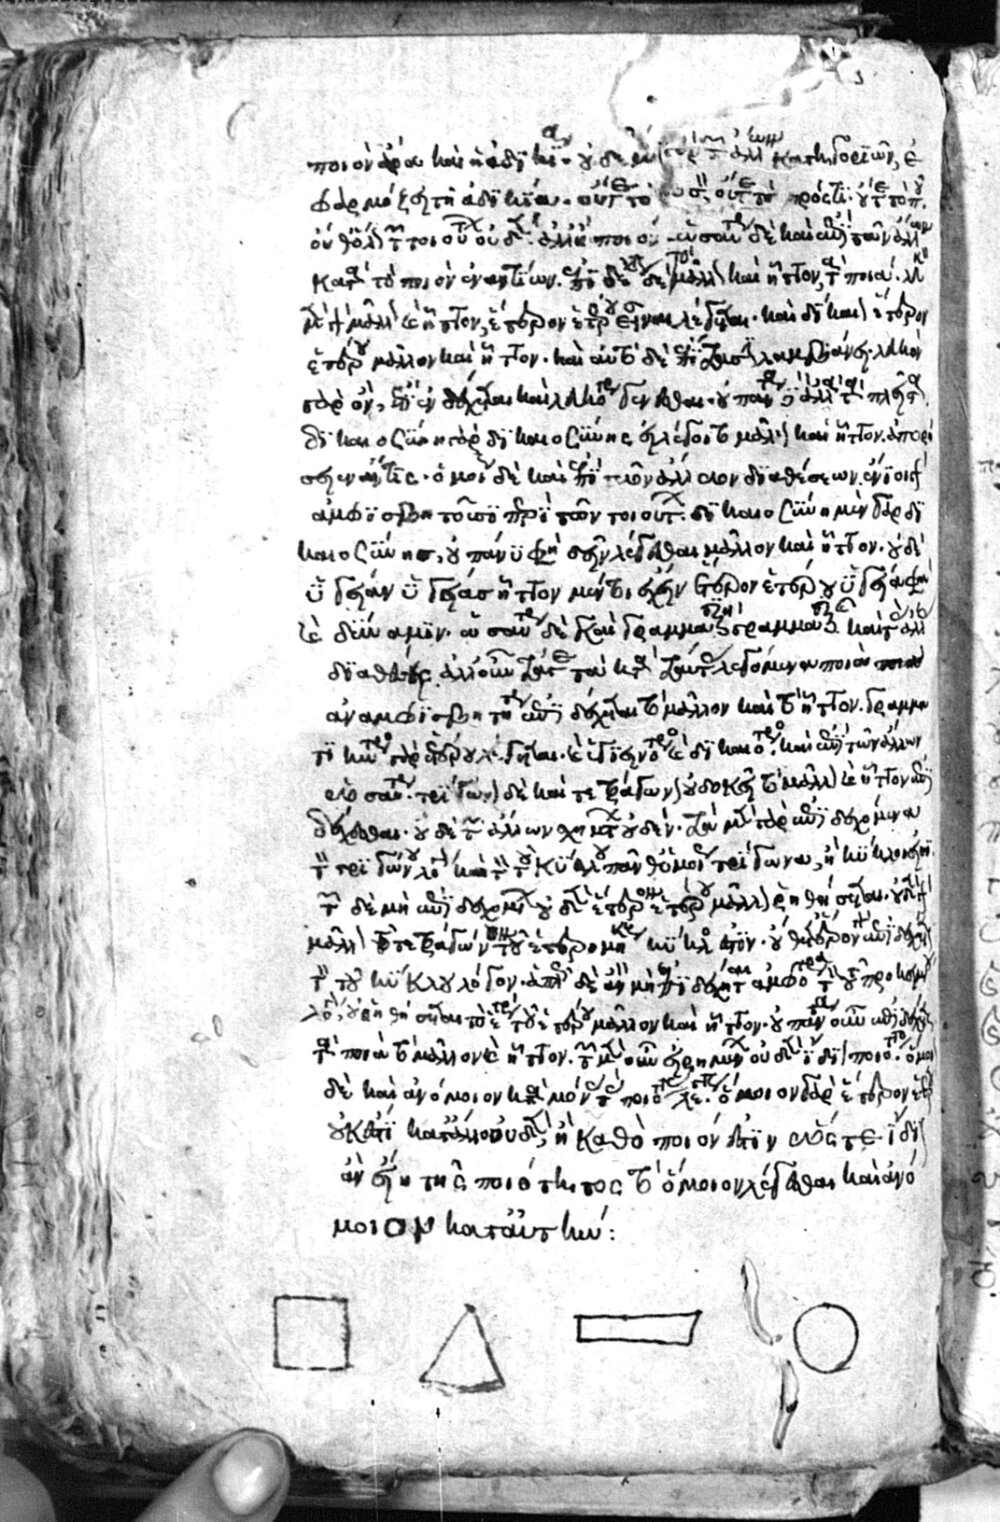 ποιὸν ἄρα καὶ ἡ ἀδικία· οὐδεμία τῶν ἄλλων κατηγοριῶν ἐ
φαρμόζει τῇ ἀδικίᾳ· οὔτε τὸ ποσόν, οὔτε τὸ πρός τι· οὔτε τὸ ποῦ·
οὐδ' ὅλως τι τῶν τοιούτων οὐδέν· ἀλλ' ἢ ποιόν· ὡσαύτως δὲ καὶ ἐπὶ τῶν ἄλλων
κατὰ τὸ ποιὸν ἐναντίων. ἐπιδέχεται δὲ μᾶλλον καὶ ἧττον τὰ ποιά· λευκὸν
μᾶλλον καὶ ἧττον ἕτερον ἑτέρου εἶναι λέγεται· καὶ δίκαιον ἕτερον
ἑτέρου μᾶλλον καὶ ἧττον· καὶ αὐτὰ δὲ ἐπίδοσιν λαμβάνει· λευκὸν
γὰρ ὄν, ἔτι ἐνδέχεται λευκότερον γενέσθαι· οὐ πάντα δὲ ἀλλὰ τὰ πλεῖστα.
δικαιοσύνη γὰρ δικαιοσύνης εἰ λέγοιτο μᾶλλον καὶ ἧττον ἀπορή
σειεν ἄν τις· ὁμοίως δὲ καὶ ἐπὶ τῶν ἄλλων διαθέσεων. ἔνιοι
ἀμφισβητοῦσι περὶ τῶν τοιούτων· δικαιοσύνην μὲν γὰρ δι
καιοσύνης, οὐ πάνυ φασὶ δεῖν λέγεσθαι μᾶλλον καὶ ἧττον· οὐδὲ
ὑγίειαν ὑγιείας ἧττον μέντοι ἔχειν ἕτερον ἑτέρου ὑγίειαν φασὶ
καὶ δικαιοσύνην· ὡσαύτως δὲ καὶ γραμματικὴν καὶ τὰς ἄλλας
διαθέσεις. ἀλλ' οὖν τά γε κατὰ ταύτας λεγόμενα ποιὰ
ἀναμφισβητήτως ἐπιδέχεται τὸ μᾶλλον καὶ τὸ ἧττον. γραμμα
τικώτερος γὰρ ἕτερος ἑτέρου λέγεται. καὶ ὑγιεινότερος καὶ δικαιότερος. καὶ ἐπὶ τῶν ἄλλων
ὡσαύτως. τρίγωνον δὲ καὶ τετράγωνον οὐ δοκεῖ τὸ μᾶλλον καὶ ἧττον ἐπι
δέχεσθαι· οὐδὲ τῶν ἄλλων σχημάτων οὐδέν. τὰ μὲν γὰρ ἐπιδεχόμενα
τὸν τοῦ τριγώνου λόγον καὶ τὸν τοῦ κύκλου πάνθ' ὁμοίως τρίγωνα, ἢ κύκλοι εἰσί.
τῶν δὲ μὴ ἐπιδεχομένων οὐδὲν ἕτερον ἑτέρου μᾶλλον ῥηθήσεται. οὐδὲν γὰρ
μᾶλλον τὸ τετράγωνον τοῦ ἑτερομήκους κύκλος ἐστίν· οὐθέτερον ἐπιδέχεται
τὸν τοῦ κύκλου λόγον. ἁπλῶς δὲ ἂν μὴ ἐπιδέχηται ἀμφότερα τὸν τοῦ προκειμένου
λόγον, οὐ ῥηθήσεται τὸ ἕτερον τοῦ ἑτέρου μᾶλλον καὶ ἧττον. οὐ πάντα οὖν ἐπιδέχεται
τὰ ποιὰ τὸ μᾶλλον καὶ ἧττον. τῶν μὲν οὖν εἰρημένων οὐδὲν ἴδιον ποιότητος. ὅμοιον
δὲ καὶ ἀνόμοιον κατὰ μόνας τὰς ποιότητας λέγεται. ὅμοιον γὰρ ἕτερον ἑτέρῳ
οὐκ ἔστι κατ' ἄλλο οὐδέν, ἢ καθὸ ποιόν ἐστιν ὥστε ἴδιον
ἂν εἴη τῆς ποιότητος τὸ ὅμοιον λέγεσθαι καὶ ἀνό
μοιον κατ' αὐτήν: